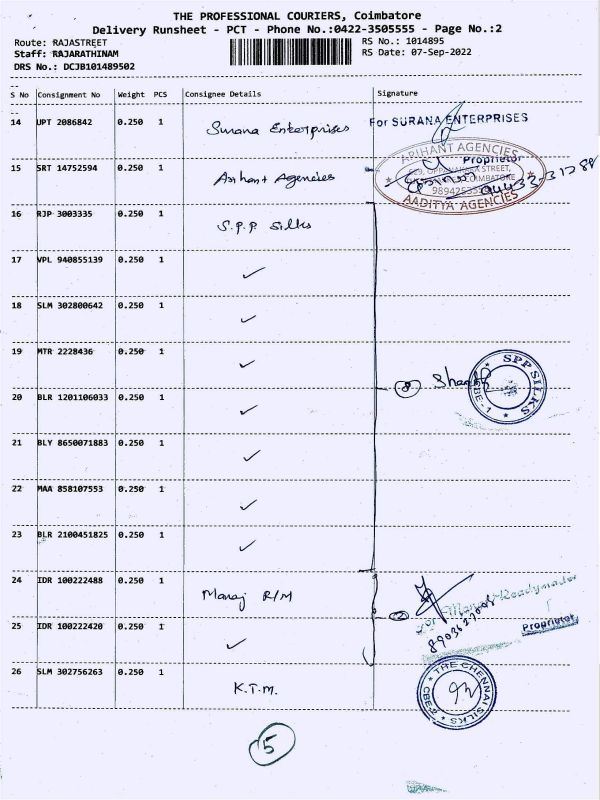 THE PROFESSIONAL COURIERS, Coimbatore
Delivery Runsheet - PCT - Phone No.:0422-3505555 - Page No.:2
Route: RAJASTREET RS No.: 1014895
Staff: RAJARATHINAM RS Date: 07-Sep-2022
DRS No.: DCJB101489502
S No Consignment No Weight PCS Consignee Details Signature
14 UPT 2086842 0.250 1 Surana Enterprises For SURANA ENTERPRISES
Proprietor
15 SRT 14752594 0.250 1 Arihant Agencies
ARIHANT AGENCIES
STREET,
COIMBATORE
AADITYA AGENCIES
94433-31288
16 RJP 3003335 0.250 1 S.P.P Silks
17 VPL 940855139 0.250 1 ✓
18 SLM 302800642 0.250 1 ✓
19 MTR 2228436 0.250 1 ✓
8
SPP SILKS
CBE-1
20 BLR 1201106033 0.250 1 ✓
21 BLY 8650071883 0.250 1 ✓
22 MAA 858107553 0.250 1 ✓
23 BLR 2100451825 0.250 1 ✓
24 IDR 100222488 0.250 1 Manaj R/M
For Manoj Readymades
Proprietor
25 IDR 100222420 0.250 1 ✓
26 SLM 302756263 0.250 1 K.T.M.
THE CHENNAI SILKS
5